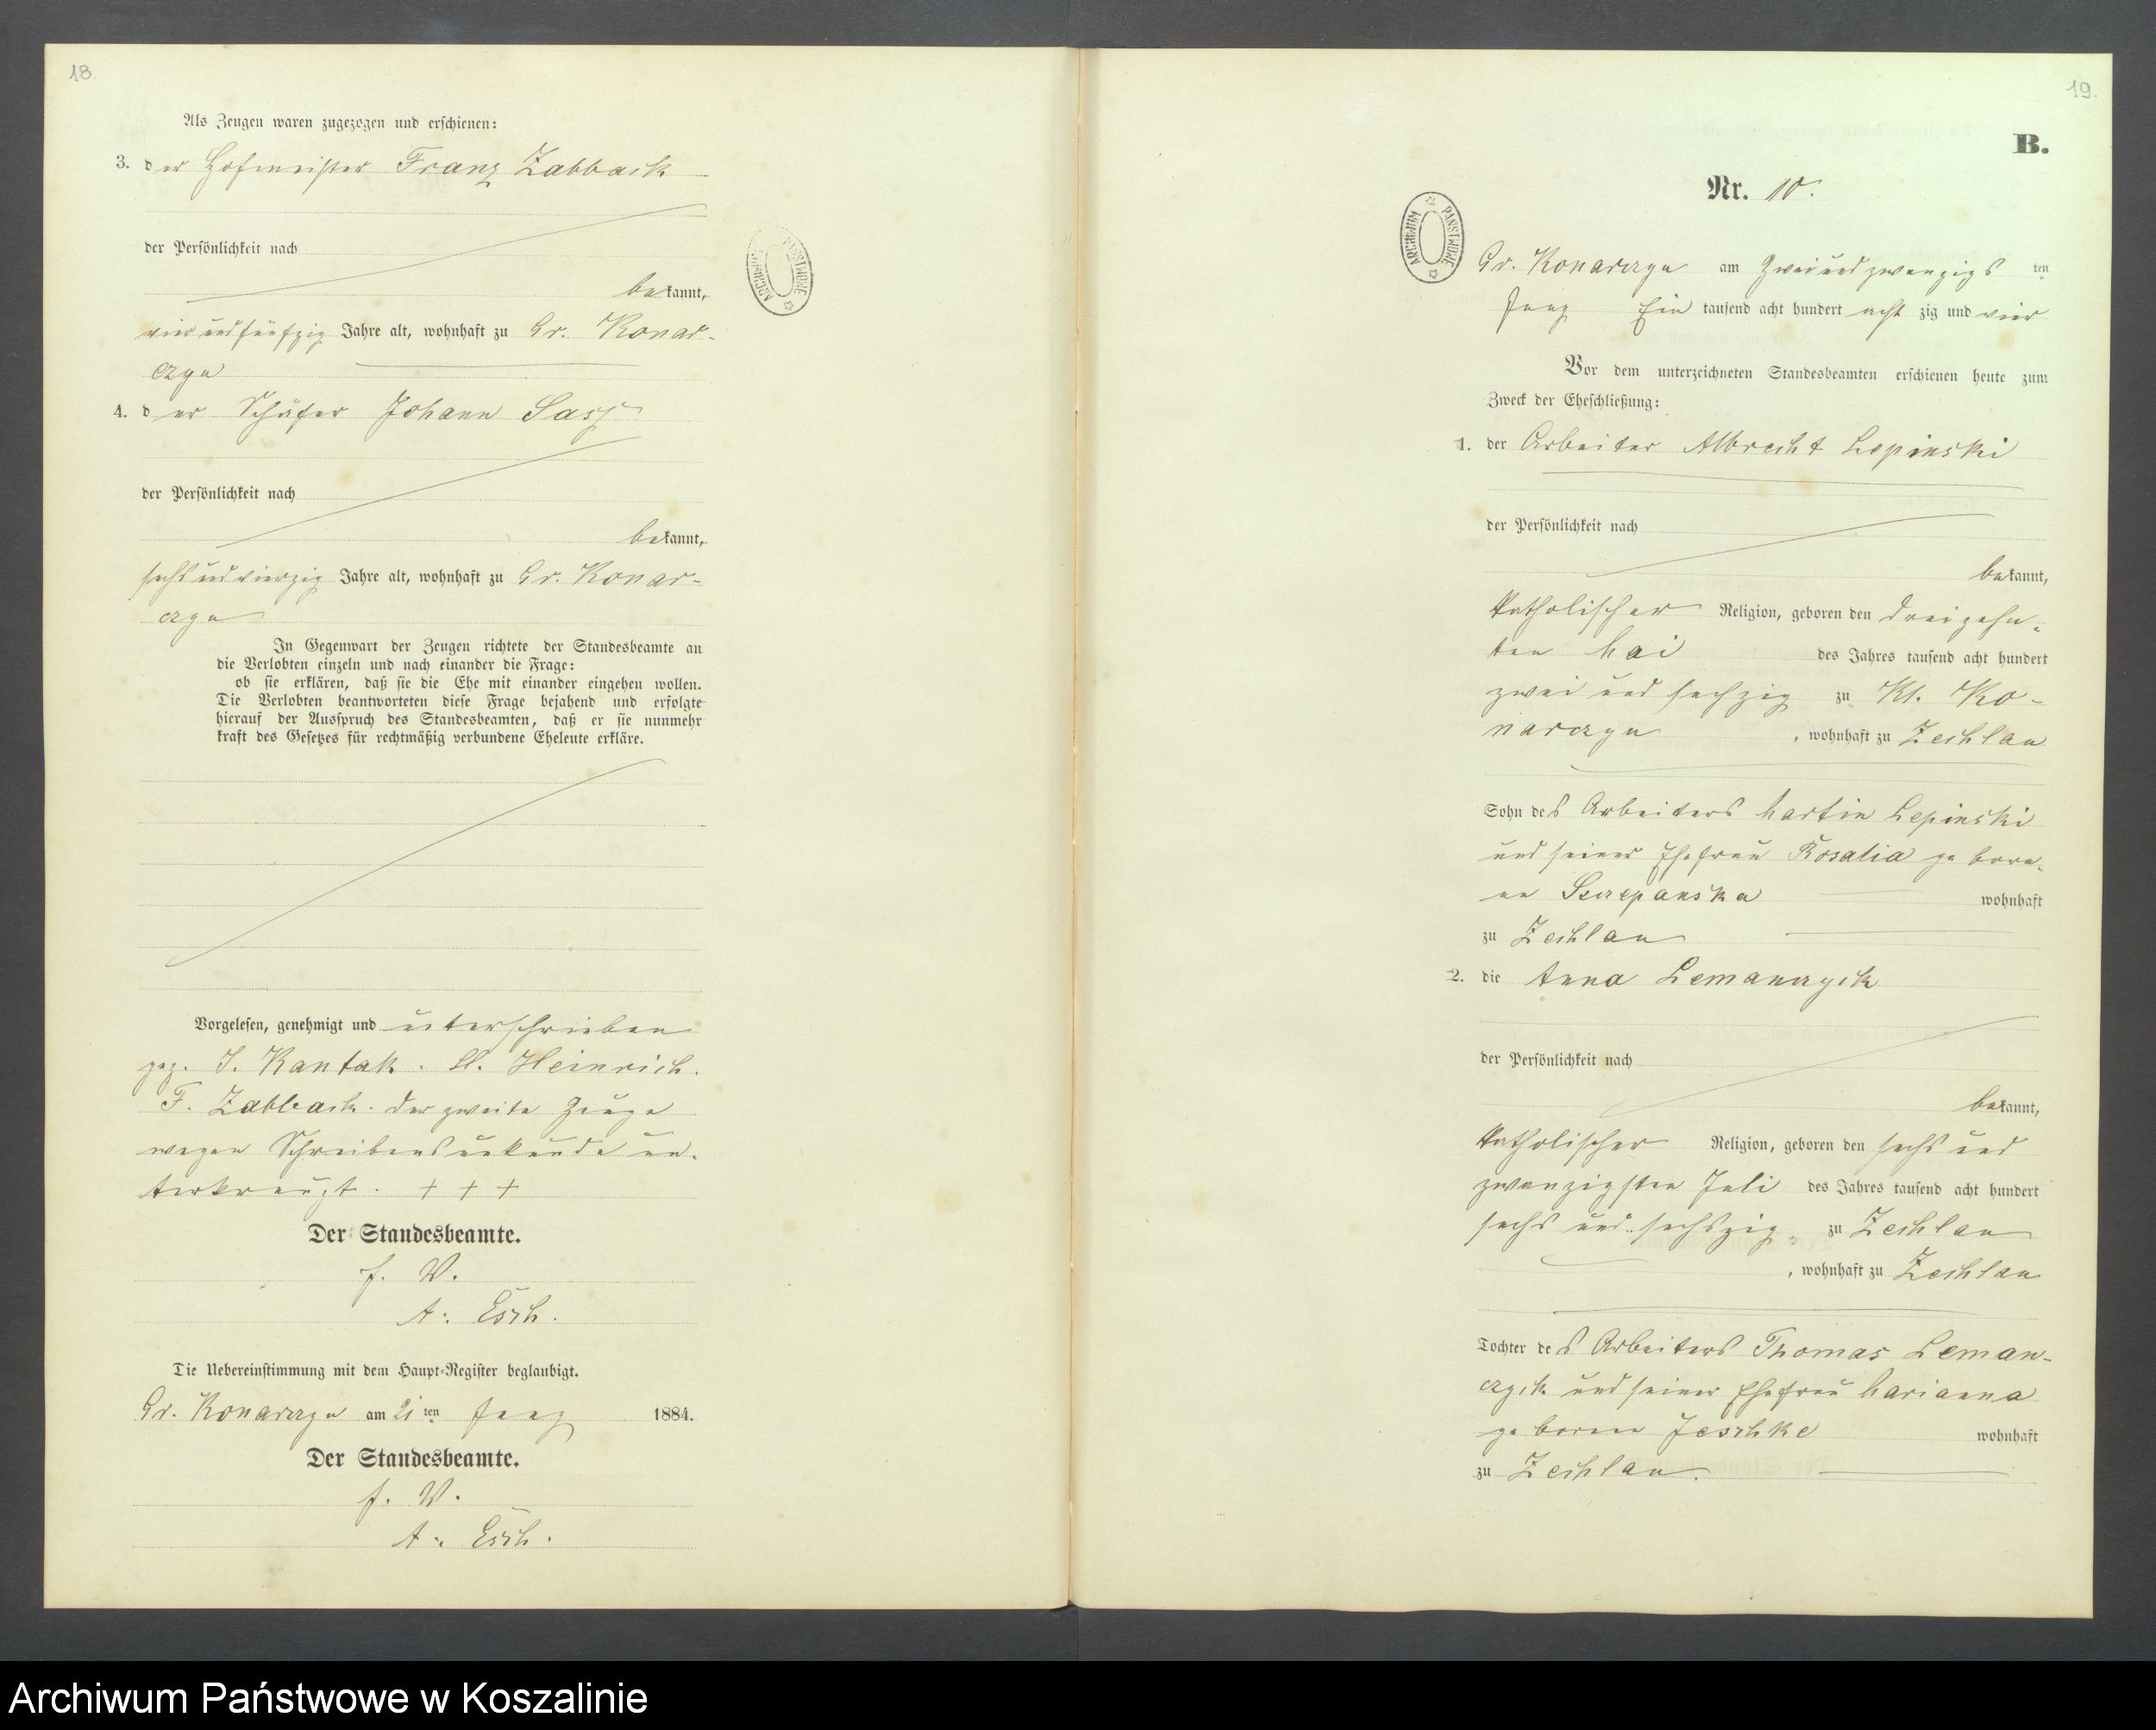 18.
Als Zeugen waren zugezogen und erschienen:
3. der Hofmeister Franz Zabback
der Persönlichkeit nach
bekannt,
vier und fünfzig Jahre alt, wohnhaft zu Gr. Konar-
czyn
4. der Schäfer Johann Sass
der Persönlichkeit nach
bekannt,
sechs und vierzig Jahre alt, wohnhaft zu Gr. Konar-
czyn
In Gegenwart der Zeugen richtete der Standesbeamte an
die Verlobten einzeln und nach einander die Frage:
ob sie erklären, daß sie die Ehe mit einander eingehen wollen.
Die Verlobten beantworteten diese Frage bejahend und erfolgte
hierauf der Ausspruch des Standesbeamten, daß er sie nunmehr
kraft des Gesetzes für rechtmäßig verbundene Eheleute erkläre.
Vorgelesen, genehmigt und unterschrieben
gez. J. Kantak. H. Heinrich.
F. Zabback. der zweite Zeuge
wegen Schreibensunkunde un-
terkreuzt. + + +
Der Standesbeamte.
J. V.
A. Esch.
Die Uebereinstimmung mit dem Haupt-Register beglaubigt.
Gr. Konarczyn am 21 ten 1884.
Der Standesbeamte.
J. V.
A. Esch.
ARCHIWUM PAŃSTWOWE
19.
B.
Nr. 10.
ARCHIWUM PAŃSTWOWE
Gr. Konarczyn am zwei und zwanzigs ten
Ein tausend acht hundert acht zig und vier
Vor dem unterzeichneten Standesbeamten erschienen heute zum
Zweck der Eheschließung:
1. der Arbeiter Albrecht Lepinski
der Persönlichkeit nach
bekannt,
katholischer Religion, geboren den dreizehn-
ten Mai des Jahres tausend acht hundert
zwei und sechzig zu Kl. Ko-
narczyn, wohnhaft zu Zechlau
Sohn des Arbeiters Martin Lepinski
und seiner Ehefrau Rosalia gebore-
ne Szczepanska wohnhaft
zu Zechlau
2. die Anna Lemanczyk
der Persönlichkeit nach
bekannt,
katholischer Religion, geboren den sechs und
zwanzigsten Juli des Jahres tausend acht hundert
sechs und sechszig zu Zechlau
, wohnhaft zu Zechlau
Tochter des Arbeiters Thomas Leman-
czyk und seiner Ehefrau Marianna
geborne Jeschke wohnhaft
zu Zechlau.
Archiwum Państwowe w Koszalinie